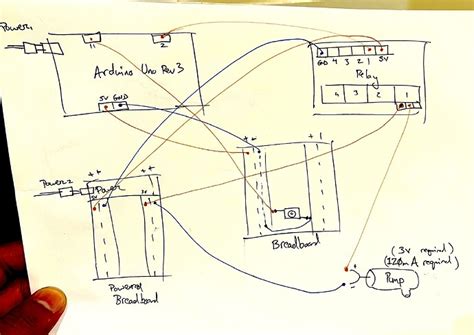 Power1
11
2
Arduino Uno Rev3
5V GND
GD 4 3 2 1 5V
Relay
4 3 2 1
+ +
+ +
+ +
+ +
Power2
Power
Breadboard
Powered
Breadboard
(3v required)
(120mA required)
Pump